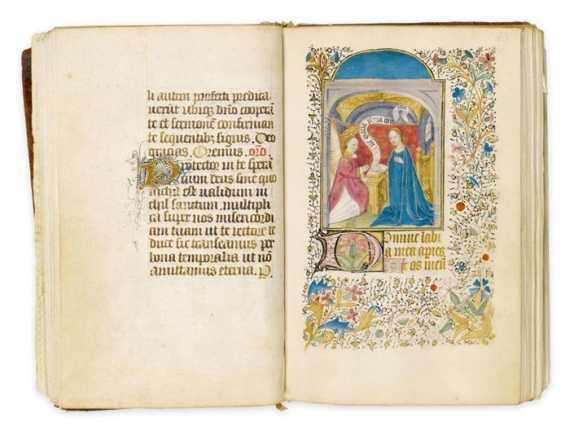 li autem profecti predica
uerūt ubiq; dño cooperā
te et sermonē confirman
te sequentib; signis. Deo
gracias. Oremus. oro
Protector in te sperā
cium deus sine quo
nichil est ualidum ni
chil sanctum. multipli
ca super nos misericordi
am tuam ut te rectore te
duce sic transeamus per
bona temporalia ut nō
amittamus eterna. P.
Domine labi
a mea aperies
et os meū